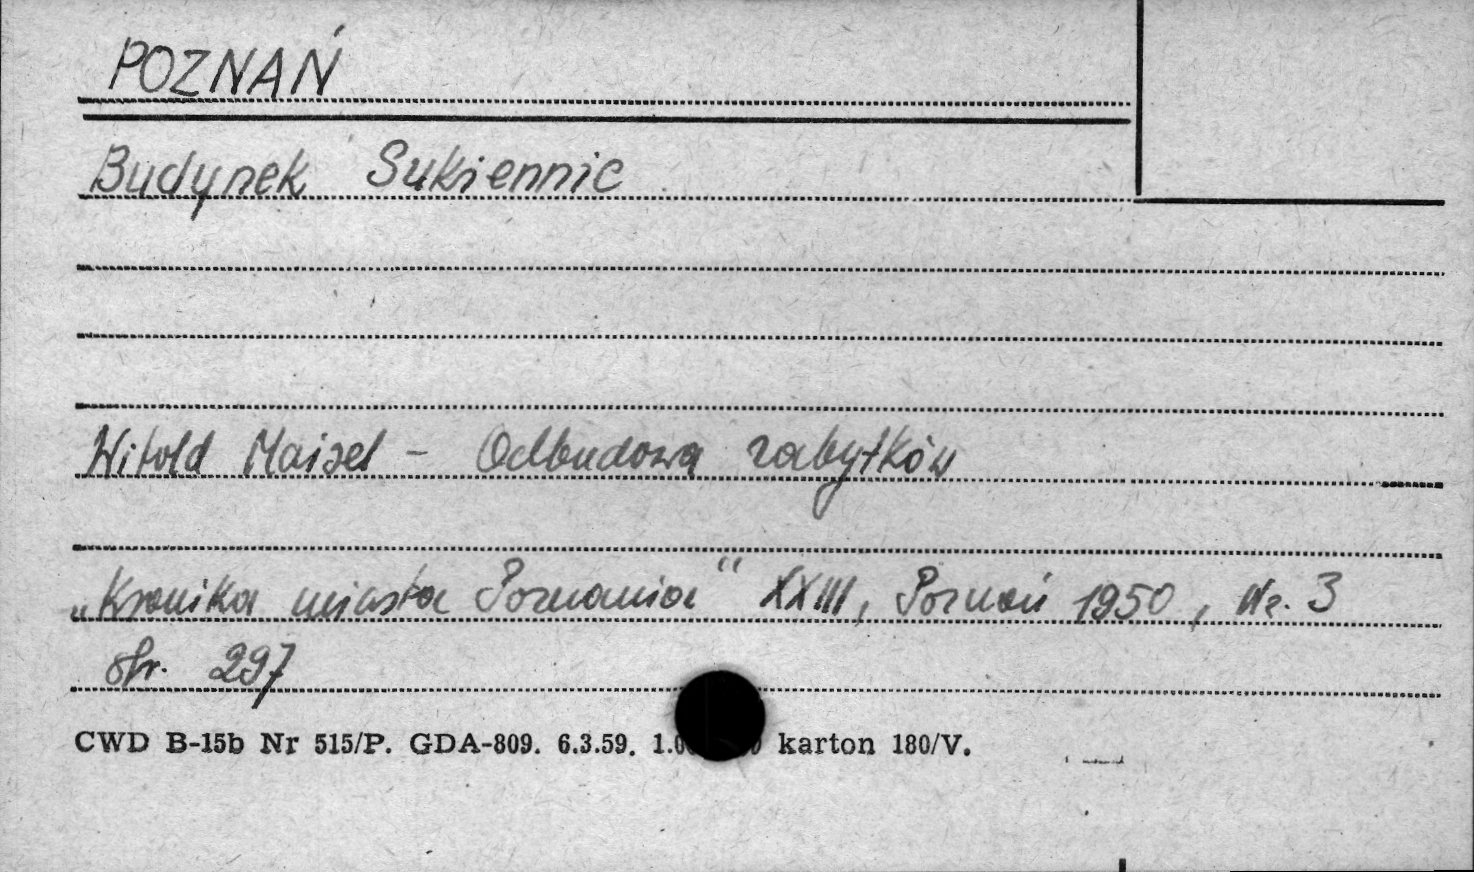 POZNAŃ
Budynek Sukiennic
Witold Maisel - Odbudowa zabytków
„Kronika miasta Poznania" XXIII, Poznań 1950, Nr. 3
str. 297
CWD B-15b Nr 515/P. GDA-809. 6.3.59. karton 180/V.